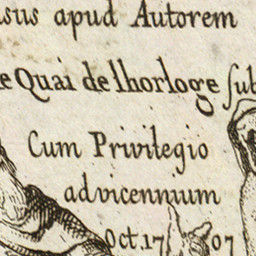 sus apud Autorem
e Quai de lhorloge sub
Cum Privilegio
ad vicennium
Oct. 17 07